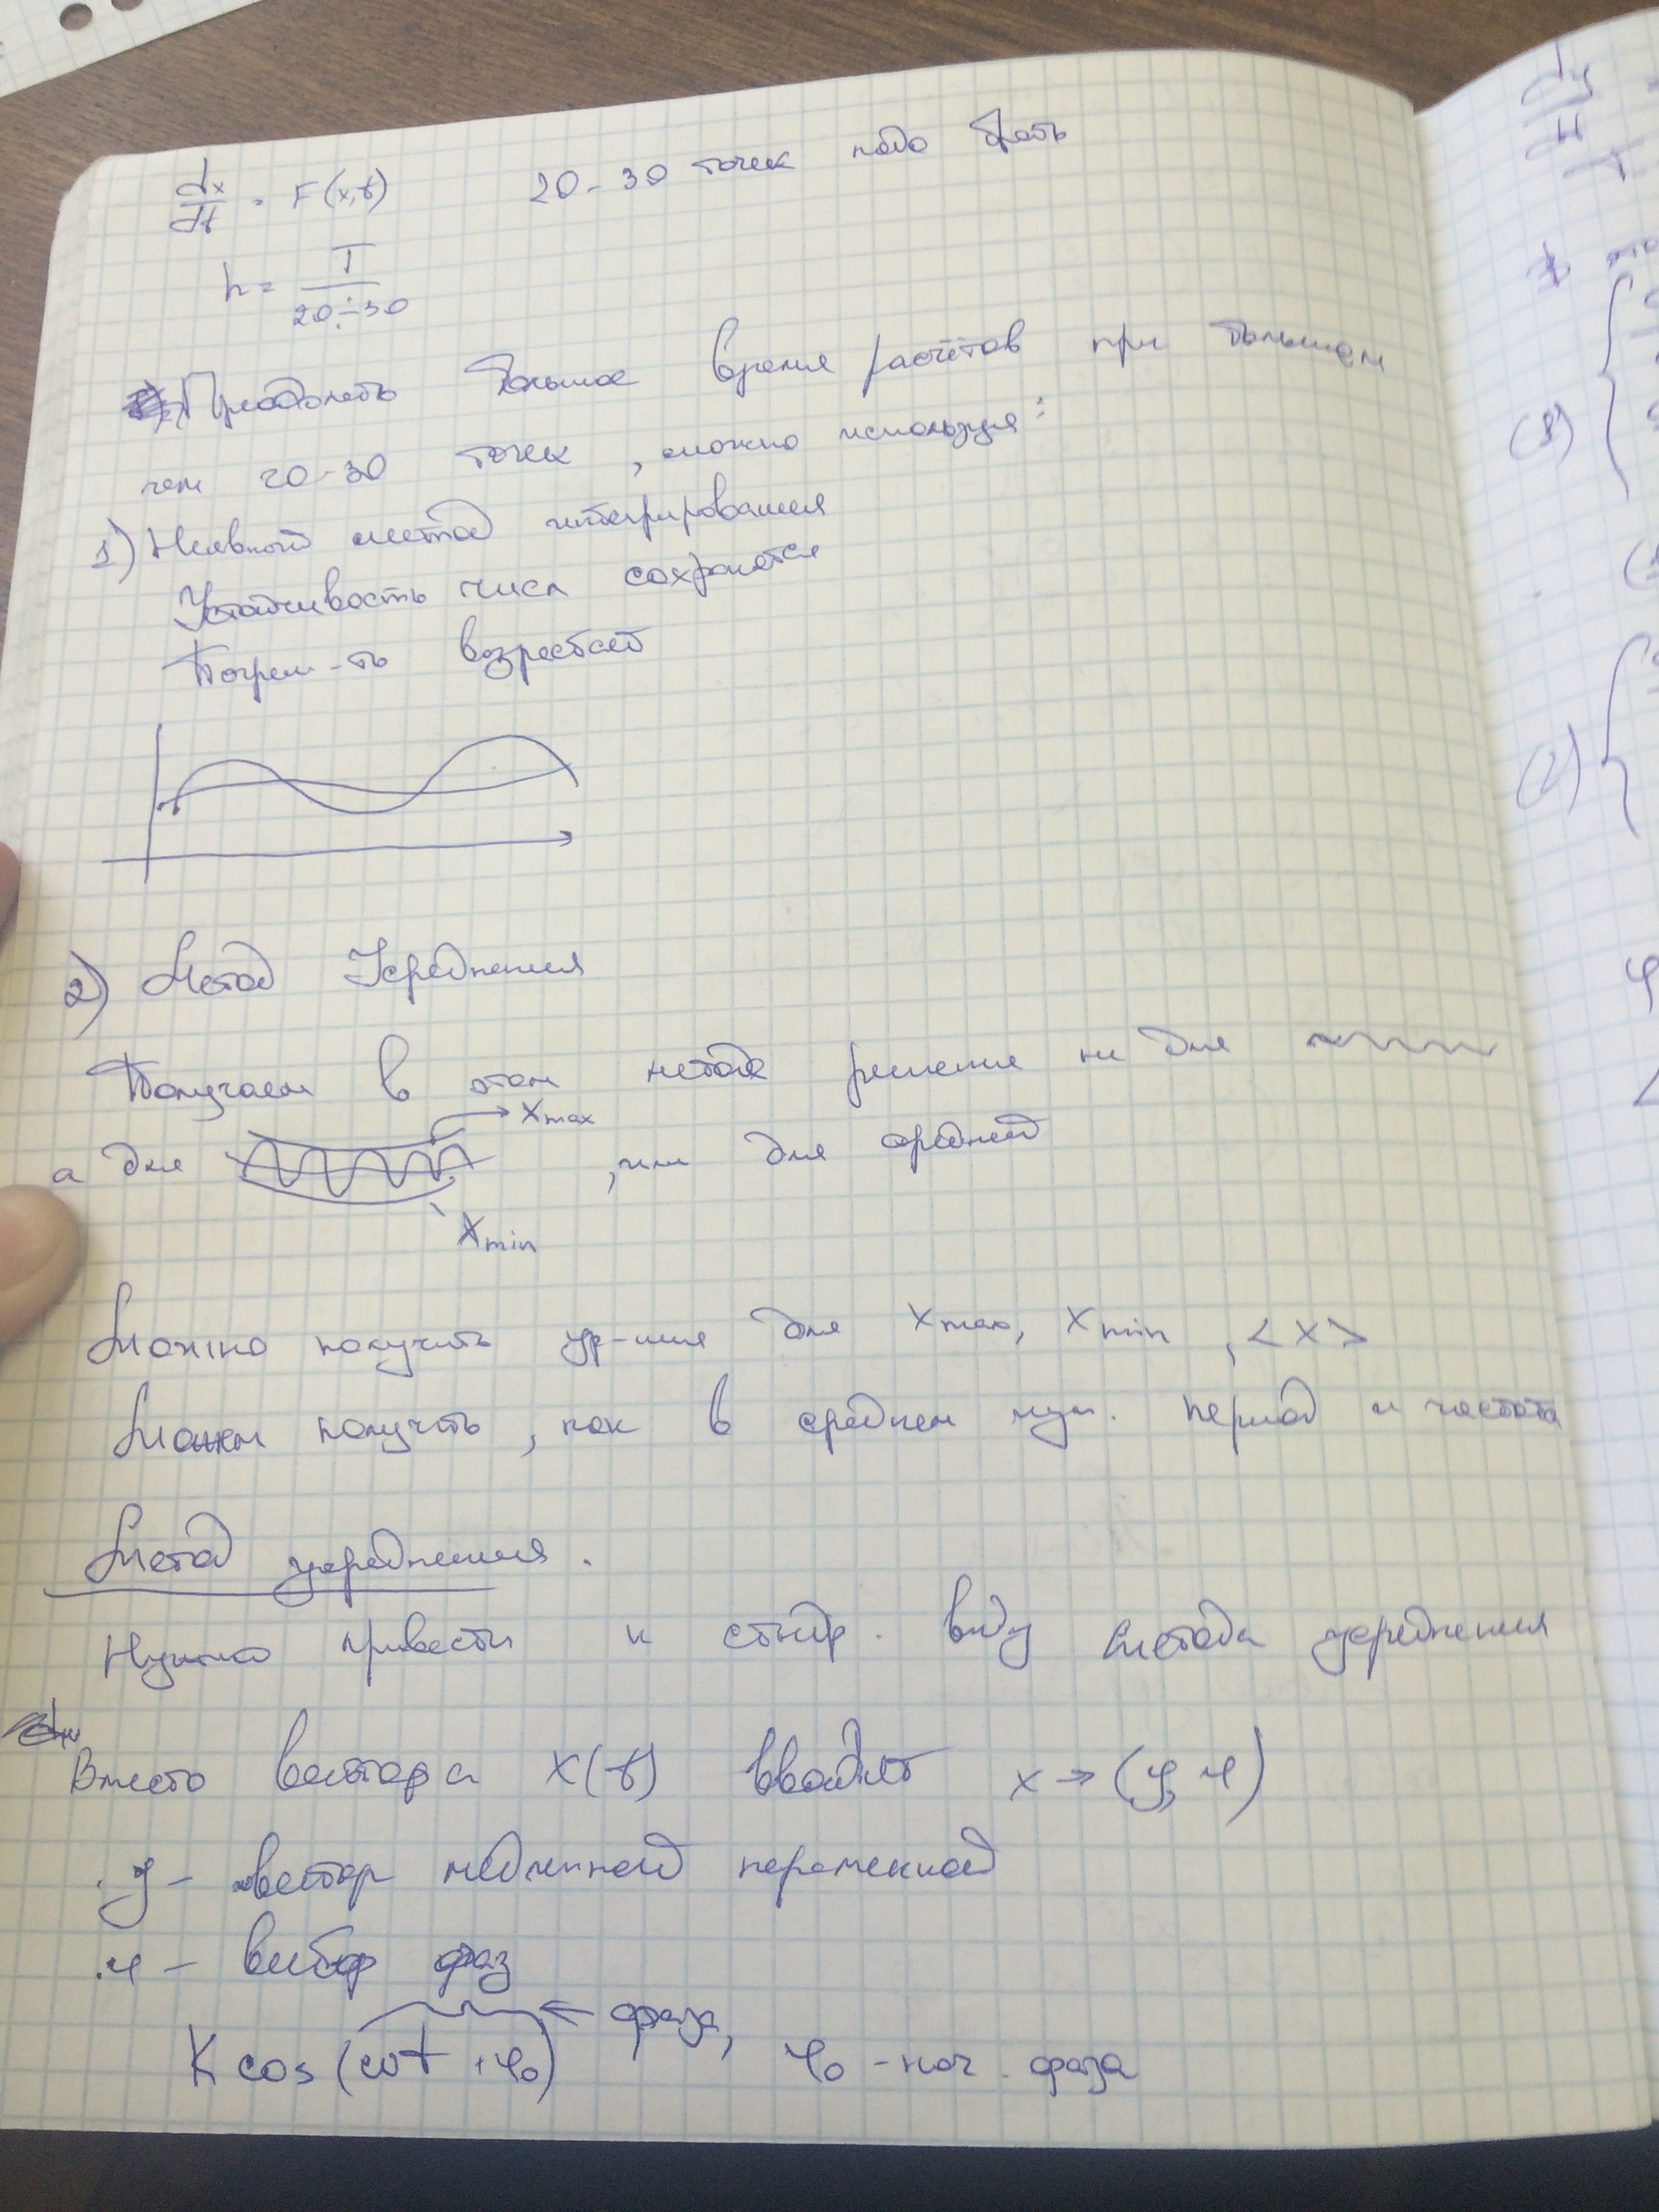 dx/dt = F(x,t) 20-30 точек надо брать
h = T / 20÷30
Преодолеть большое время расчётов при большем
чем 20-30 точек, можно используя:
1) Неявный метод интегрирования
Устойчивость числ сохраняется
Погреш-ть возрастает
2) Метод Усреднения
Получаем в этом методе решение не для
xmax
а для , или для средней
xmin
Можно получить ур-ния для xmax, xmin, <x>
Можем получить, как в среднем период и частота
Метод усреднения.
Нужно привести к станд. виду метода усреднения
Вместо вектора x(t) вводят x → (y, φ)
y - вектор медленной переменной
φ - фаз
K cos (ωt + φ0) ← фаза, φ0 - нач. фаза
(1)
(2)